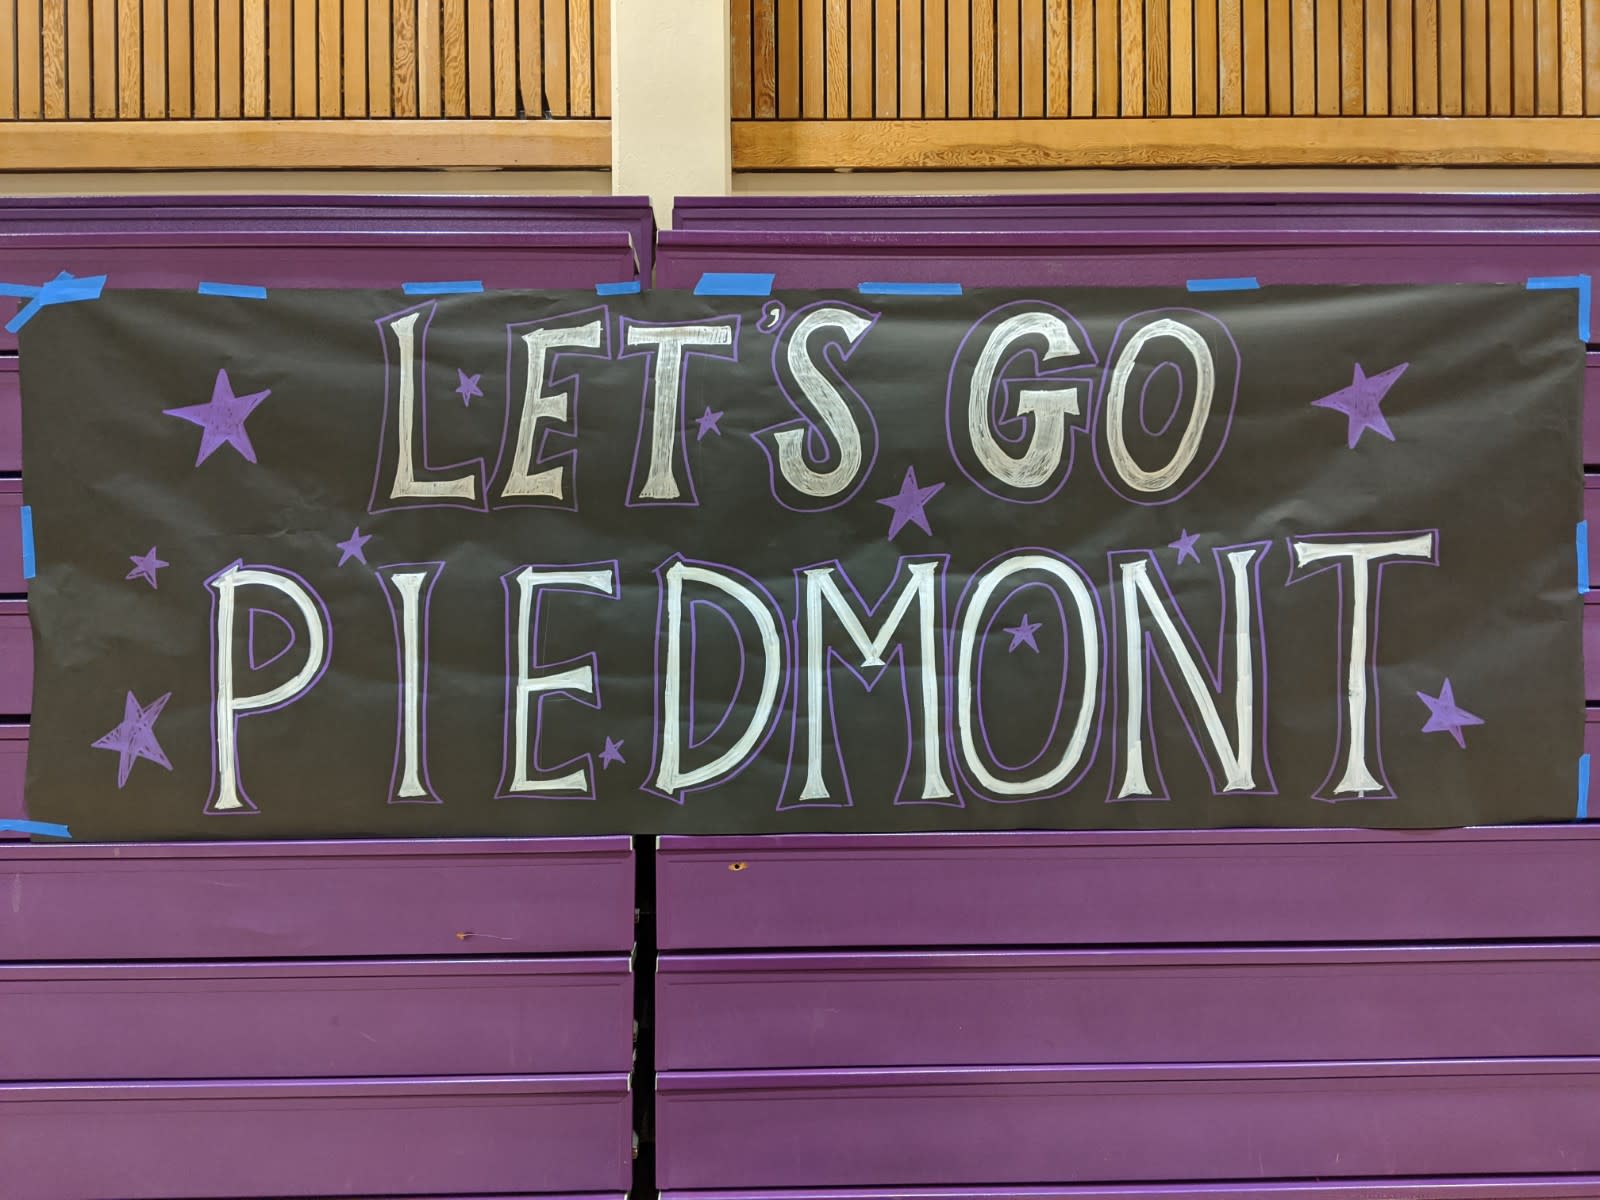 LET'S GO
PIEDMONT